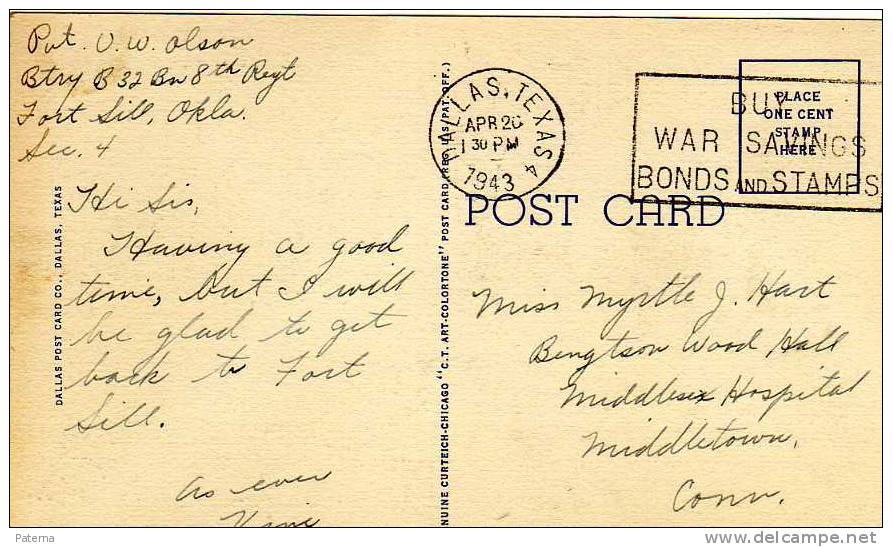 Pvt. V. W. Olson
Btry B 32 Bn 8th Regt
Fort Sill, Okla.
Sec. 4
Hi Sis,
Having a good
time, but I will
be glad to get
back to Fort
Sill.
As ever
DALLAS POST CARD CO., DALLAS, TEXAS
NUINE CURTEICH-CHICAGO "C.T. ART-COLORTONE" POST CARD (REG. U.S. PAT. OFF.)
DALLAS, TEXAS 4
APR 20
1 30 PM
1943
BUY
WAR SAVINGS
BONDS AND STAMPS
PLACE
ONE CENT
STAMP
HERE
POST CARD
Miss Myrtle J. Hart
Bengtson Wood Hall
Middlesex Hospital
Middletown,
Conn.
Paterna
www.delcampe.net